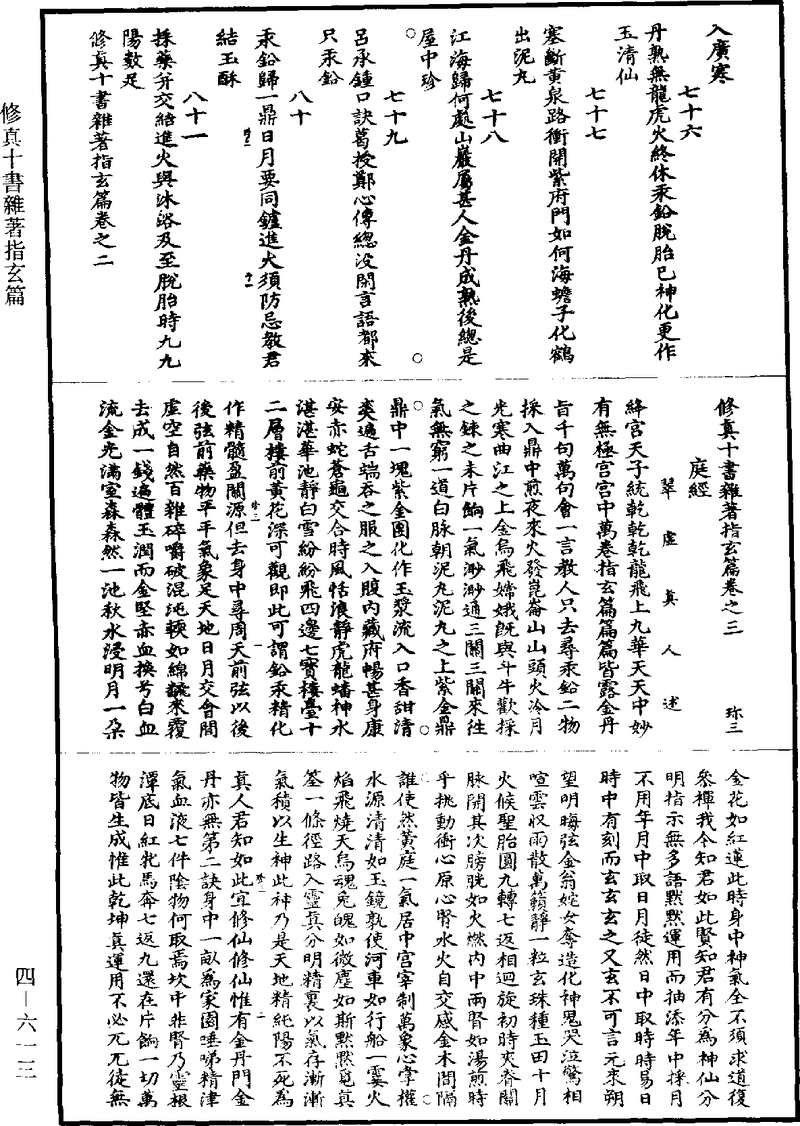 入廣寒
七十六
丹熟無龍虎火終休汞鉛脫胎已神化更作
玉清仙
七十七
塞斷黃泉路衝開紫府門如何海蟾子化鶴
出泥丸
七十八
江海歸何處山巖屬甚人金丹成熟後總是
屋中珍
七十九
呂承鍾口訣葛授鄭心傳總没閑言語都來
只汞鉛
八十
汞鉛歸一鼎日月要同鑪進火須防忌教君
結玉酥
八十一
採藥并交結進火與沐浴及至脫胎時九九
陽數足
修真十書雜著指玄篇卷之二
修真十書雜著指玄篇卷之三 珎三
庭經
翠虛真人述
絳宮天子統乾乾乾龍飛上九華天天中妙
有無極宮宮中萬卷指玄篇篇篇皆露金丹
旨千句萬句會一言教人只去尋汞鉛二物
採入鼎中煎夜來火發崑崙山山頭火冷月
光寒曲江之上金烏飛嫦娥旣與斗牛歡採
之鍊之未片餉一氣渺渺通三關三關來往
氣無窮一道白脉朝泥丸泥丸之上紫金鼎
鼎中一塊紫金團化作玉漿流入口香甜清
爽遍舌端吞之服之入腹内藏府暢甚身康
安赤蛇蒼龜交合時風恬浪靜虎龍蟠神水
湛湛華池靜白雪紛紛飛四邊七寶樓臺十
二層樓前黃花深可觀即此可謂鉛汞精化
作精髓盈關源但去身中尋周天前弦以後
後弦前藥物平平氣象足天地日月交會間
虛空自然百雜碎嚼破混沌輭如綿虀來覆
去成一錢遍體玉潤而金堅赤血換兮白血
流金光滿室森森然一池秋水浸明月一朵
金花如紅蓮此時身中神氣全不須求道復
叅禪我今知君如此賢知君有分為神仙分
明指示無多語黙黙運用而抽添年中採月
不用年月中取日月徒然日中取時時易日
時中有刻而玄玄玄之又玄不可言元來朔
望明晦弦金翁姹女奪造化神鬼哭泣驚相
喧雲収雨散萬籟靜一粒玄珠種玉田十月
火候聖胎圓九轉七返相迴旋初時夾脊關
脉開其次膀胱如火燃内中兩腎如湯煎時
乎挑動衝心原心腎水火自交感金木間隔
誰使然黃庭一氣居中宮宰制萬象心掌權
水源清清如玉鏡孰使河車如行船一霎火
焰飛燒天烏魂兔魄如微塵如斯黙黙覓真
筌一條徑路入靈真分明精裏以氣存漸漸
氣積以生神此神乃是天地精純陽不死為
真人君知如此宜修仙修仙惟有金丹門金
丹亦無第二訣身中一畝為家園唾唏精津
氣血液七件陰物何取焉坎中非腎乃靈根
潭底日紅牝馬奔七返九還在片餉一切萬
物皆生成惟此乾坤真運用不必兀兀徒無
修真十書雜著指玄篇
四－六一三